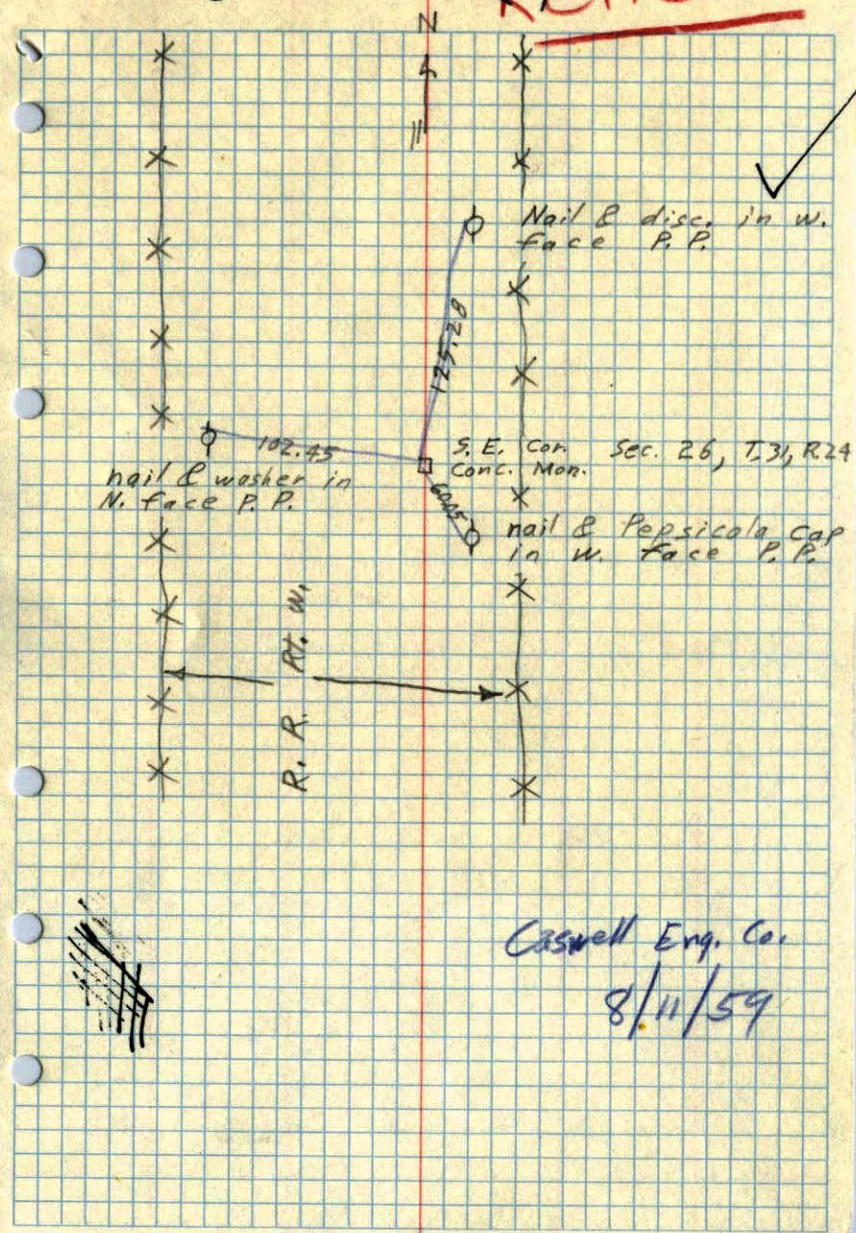 N
Nail & disc. in w.
face P. P.
125.28
102.45
S. E. Cor. Sec. 26, T.31, R.24
Conc. Mon.
nail & washer in
N. face P. P.
nail & Pepsicola cap
in w. face P. P.
R. R. Rt. W.
Caswell Eng. Co.
8/11/59